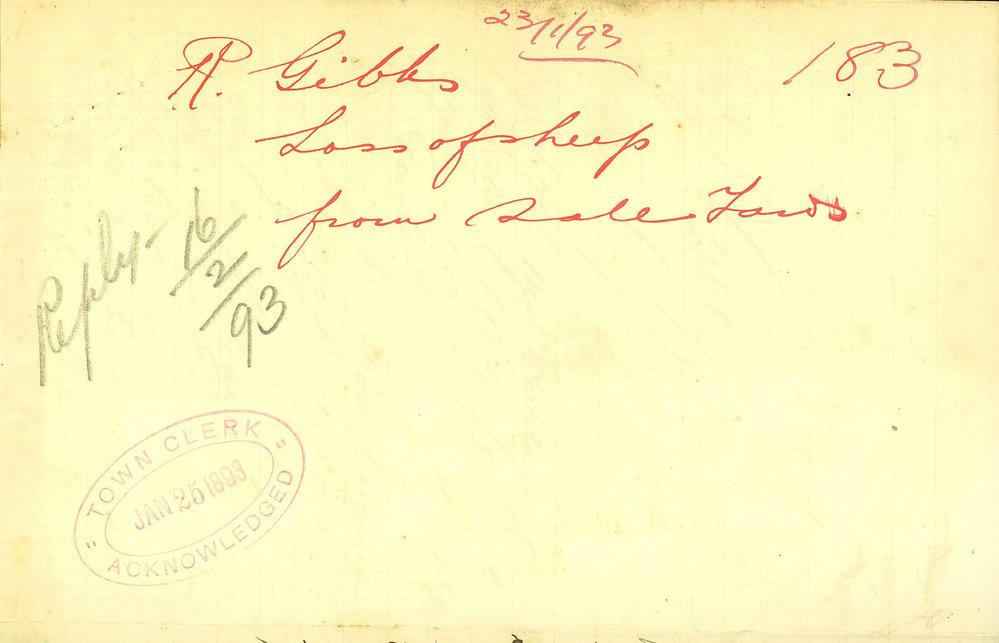 23/1/93
R. Gibbs 183
Loss of sheep
from Sale Yards
Reply 16/2/93
"TOWN CLERK"
JAN 25 1893
ACKNOWLEDGED